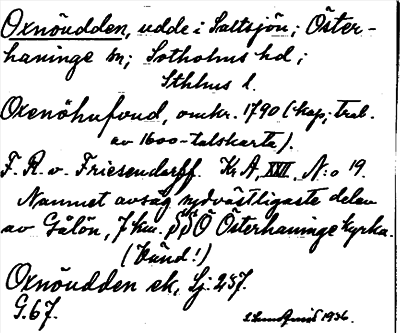 Oxnöudden, udde i Saltsjön; Öster-
haninge sn; Sotholms hd;
Sthlms l.
Oxenöhufvud, omkr. 1790 (kop. trol.
av 1600-talskarta).
F. R. v. Friesendorff. Kr A, XVII, N:o 19.
Namnet avsåg sydvästligaste delen
av Gålön, 7 km. SSÖ Österhaninge kyrka.
(Vänd!)
Oxnöudden ek, Lj. 257.
G. 67.
1936.